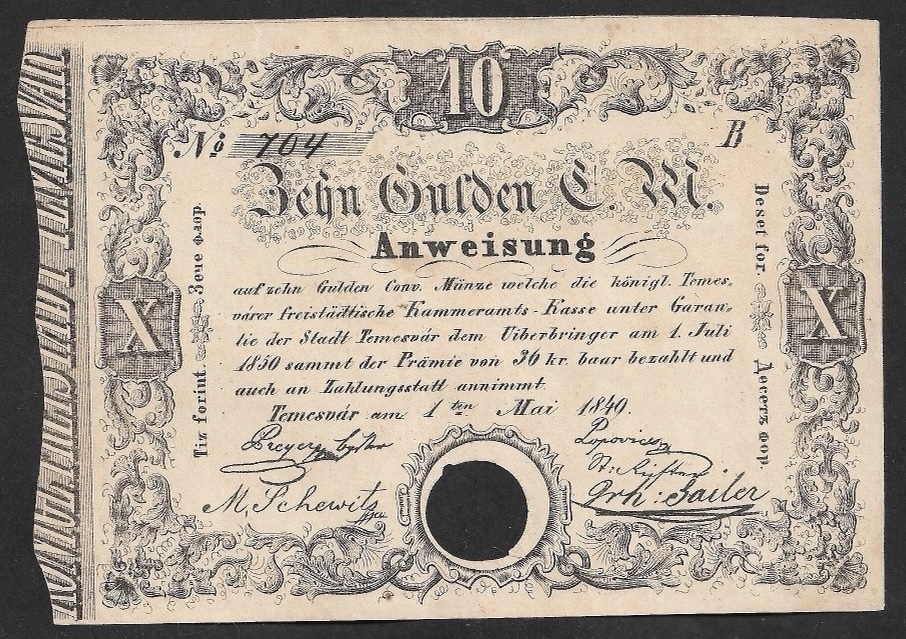 10
No 764
B
Zehn Gulden C. M.
Anweisung
auf zehn Gulden Conv. Münze welche die königl. Temes-
várer freistädtische Kammeramts-Kasse unter Garan-
tie der Stadt Temesvár dem Uiberbringer am 1. Juli
1850 sammt der Prämie von 30 kr. baar bezahlt und
auch an Zahlungsstatt annimmt.
Temesvár am 1ten Mai 1849.
Preyer
Popovics
M. Schewitz
Joh: Sailer
Tiz forint.
Зече флор.
Deset for.
Десетъ фор.
X
X